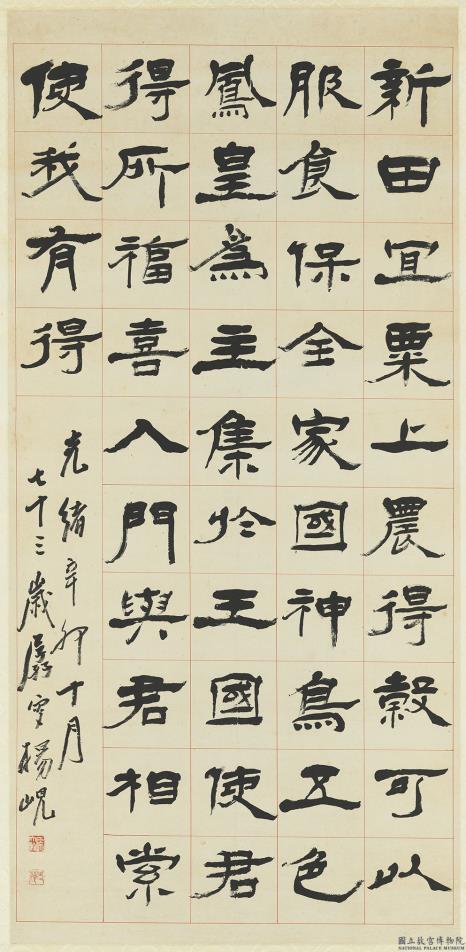 新田宜粟上農得穀可以
服食保全家國神鳥五色
鳳皇為主集於王國使君
得所福喜入門與君相索
使我有得
光緒辛卯十月
七十三歲孱叟楊峴
國立故宮博物院
NATIONAL PALACE MUSEUM